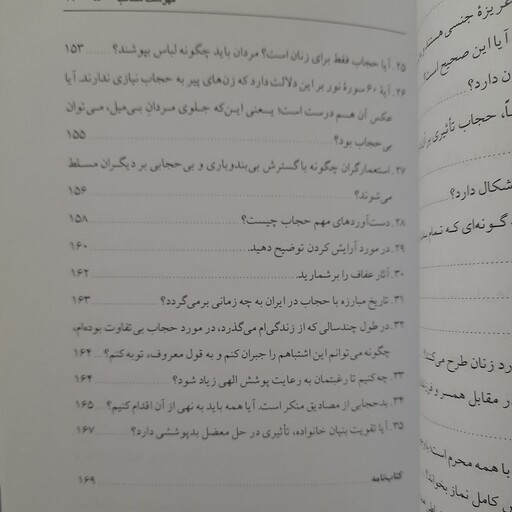 ۲۵. آیا حجاب فقط برای زنان است؟ مردان باید چگونه لباس بپوشند؟ ۱۵۳
۲۶. آیهٔ ۶۰ سورهٔ نور بر این دلالت دارد که زن‌های پیر به حجاب نیازی ندارند. آیا
عکس آن هم درست است؛ یعنی این‌که جلوی مردانِ بی‌میل، می‌توان
بی‌حجاب بود؟ ۱۵۵
۲۷. استعمارگران چگونه با گسترش بی‌بندوباری و بی‌حجابی بر دیگران مسلط
می‌شوند؟ ۱۵۶
۲۸. دست‌آوردهای مهم حجاب چیست؟ ۱۵۸
۲۹. در مورد آرایش کردن توضیح دهید. ۱۶۰
۳۰. آثار عفاف را برشمارید. ۱۶۲
۳۱. تاریخ مبارزه با حجاب در ایران به چه زمانی برمی‌گردد؟ ۱۶۳
۳۲. در طول چندسالی که از زندگی‌ام می‌گذرد، در مورد حجاب بی‌تفاوت بوده‌ام،
چگونه می‌توانم این اشتباهم را جبران کنم و به قول معروف، توبه کنم؟ ۱۶۴
۳۳. چه کنیم تا رغبتمان به رعایت پوشش الهی زیاد شود؟ ۱۶۴
۳۴. بدحجابی از مصادیق منکر است. آیا همه باید به نهی از آن اقدام کنیم؟ ۱۶۵
۳۵. آیا تقویت بنیان خانواده، تأثیری در حل معضل بدپوششی دارد؟ ۱۶۷
کتاب‌نامه ۱۶۹
غریزهٔ جنسی هستند
آیا این صحیح است؟
ن دارد؟
حجاب تأثیری بر
شکال دارد؟
گونه‌ای که تمام
رد زنان طرح می‌کند؟
ر مقابل همسر و
با همه محرم است؛
س کامل نماز بخواند؟